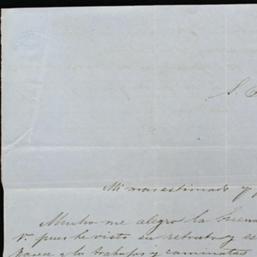 S.
Mi mas estimado y
Mucho me alegro la buena
V. pues he visto su retrato y se
para los trabajos y caminatas